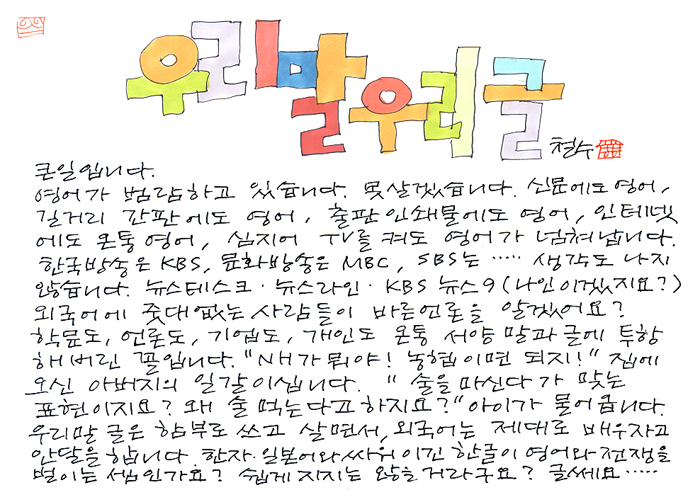 우리말우리글
철수
큰일입니다.
영어가 범람하고 있습니다. 못살겠습니다. 신문에도 영어,
길거리 간판에도 영어, 출판인쇄물에도 영어, 인터넷
에도 온통 영어, 심지어 TV를 켜도 영어가 넘쳐납니다.
한국방송은 KBS, 문화방송은 MBC, SBS는 ····· 생각도 나지
않습니다. 뉴스데스크·뉴스라인·KBS 뉴스9(나인이겠지요?)
외국어에 줏대없는 사람들이 바른언론을 알겠어요?
학문도, 언론도, 기업도, 개인도 온통 서양 말과 글에 투항
해버린 꼴입니다. "NH가 뭐야! 농협이면 되지!" 집에
오신 아버지의 일갈이십니다. "술을 마신다가 맞는
표현이지요? 왜 술 먹는다고 하지요?" 아이가 물어옵니다.
우리말 글은 함부로 쓰고 살면서, 외국어는 제대로 배우자고
안달을 합니다. 한자·일본어와 싸워 이긴 한글이 영어와 전쟁을
벌이는 셈인가요? 쉽게 지지는 않을거라구요? 글쎄요·····